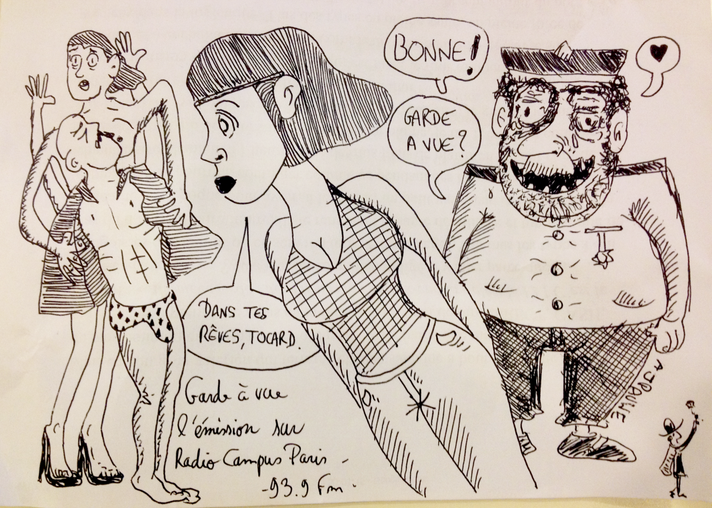 BONNE!
GARDE
A VUE?
♥
DANS TES
RÊVES, TOCARD.
Garde à vue
l'émission sur
Radio Campus Paris -
- 93.9 Fm -